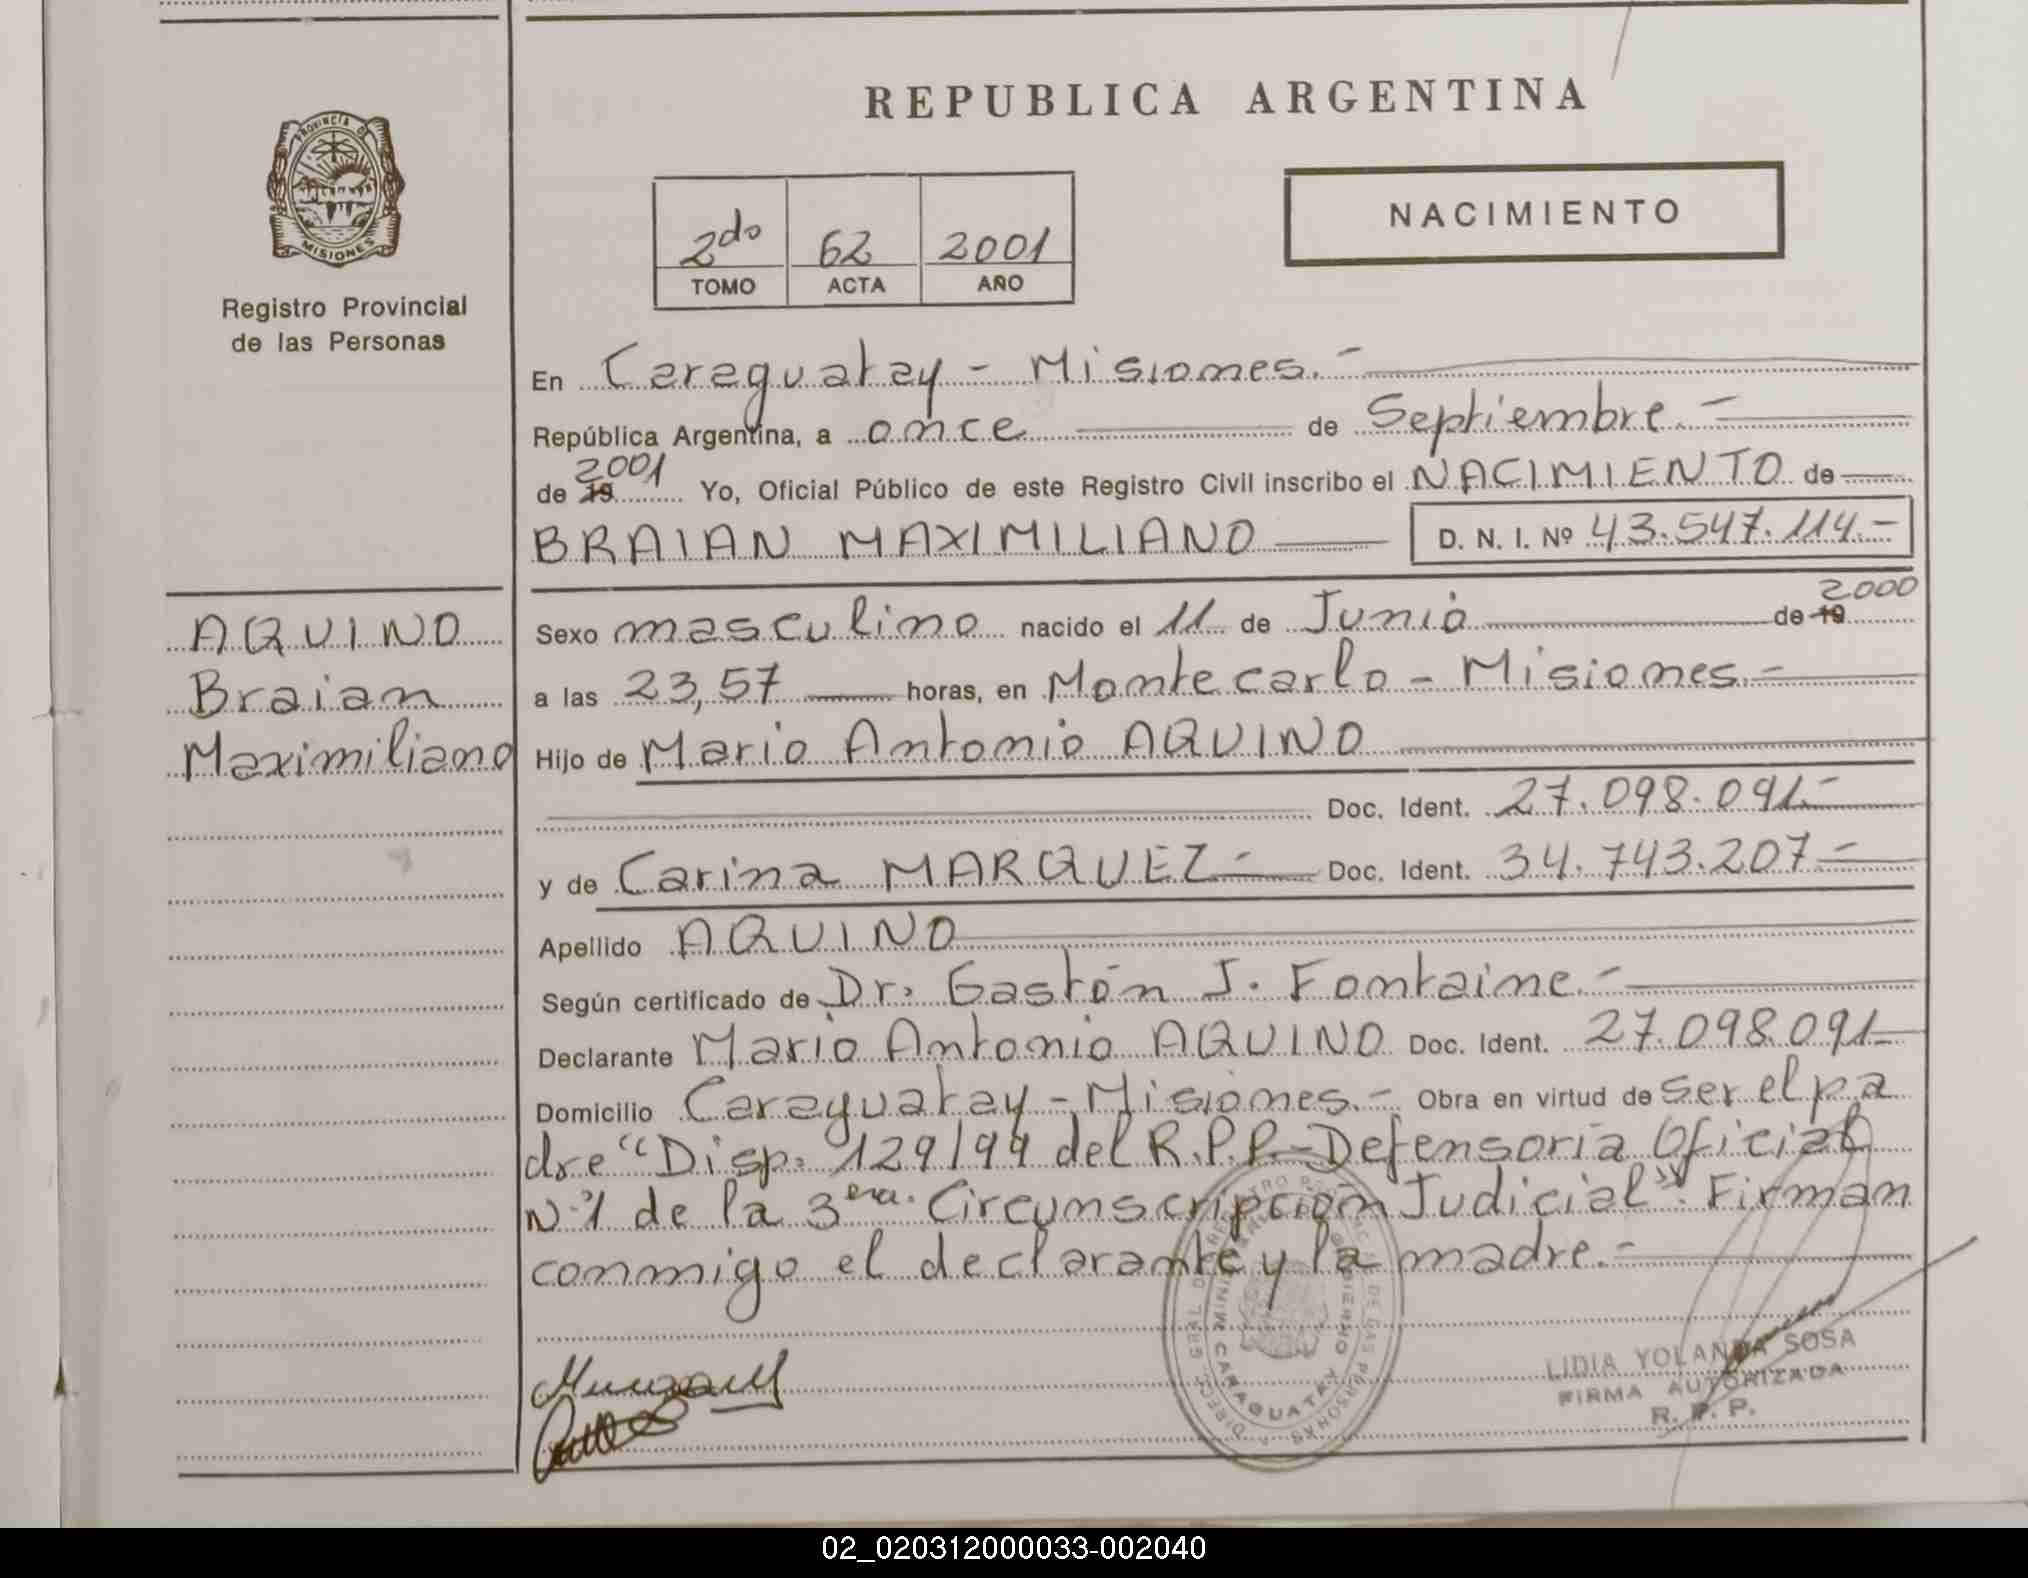 REPUBLICA ARGENTINA
PROVINCIA DE
MISIONES
Registro Provincial
de las Personas
NACIMIENTO
2do 62 2001
TOMO ACTA AÑO
En Caraguatay - Misiones.-
República Argentina, a once de Septiembre.-
de 19 2001 Yo, Oficial Público de este Registro Civil inscribo el NACIMIENTO de
BRAIAN MAXIMILIANO D. N. I. Nº 43.547.114.-
AQUINO
Braian
Maximiliano
Sexo masculino nacido el 11 de Junio de 19 2000
a las 23,57 horas, en Montecarlo - Misiones.-
Hijo de Mario Antonio AQUINO
Doc. Ident. 27.098.091.-
y de Carina MARQUEZ- Doc. Ident. 34.743.207-
Apellido AQUINO
Según certificado de Dr. Gastón J. Fontaine.-
Declarante Mario Antonio AQUINO Doc. Ident. 27.098.091-
Domicilio Caraguatay - Misiones.- Obra en virtud de ser el pa
dre "Disp. 129/99 del R.P.P.-Defensoría Oficial
Nº1 de la 3era. Circunscripción Judicial". Firman
conmigo el declarante y la madre.-
CARAGUATAY
LIDIA YOLANDA SOSA
FIRMA AUTORIZADA
R. P. P.
02_020312000033-002040